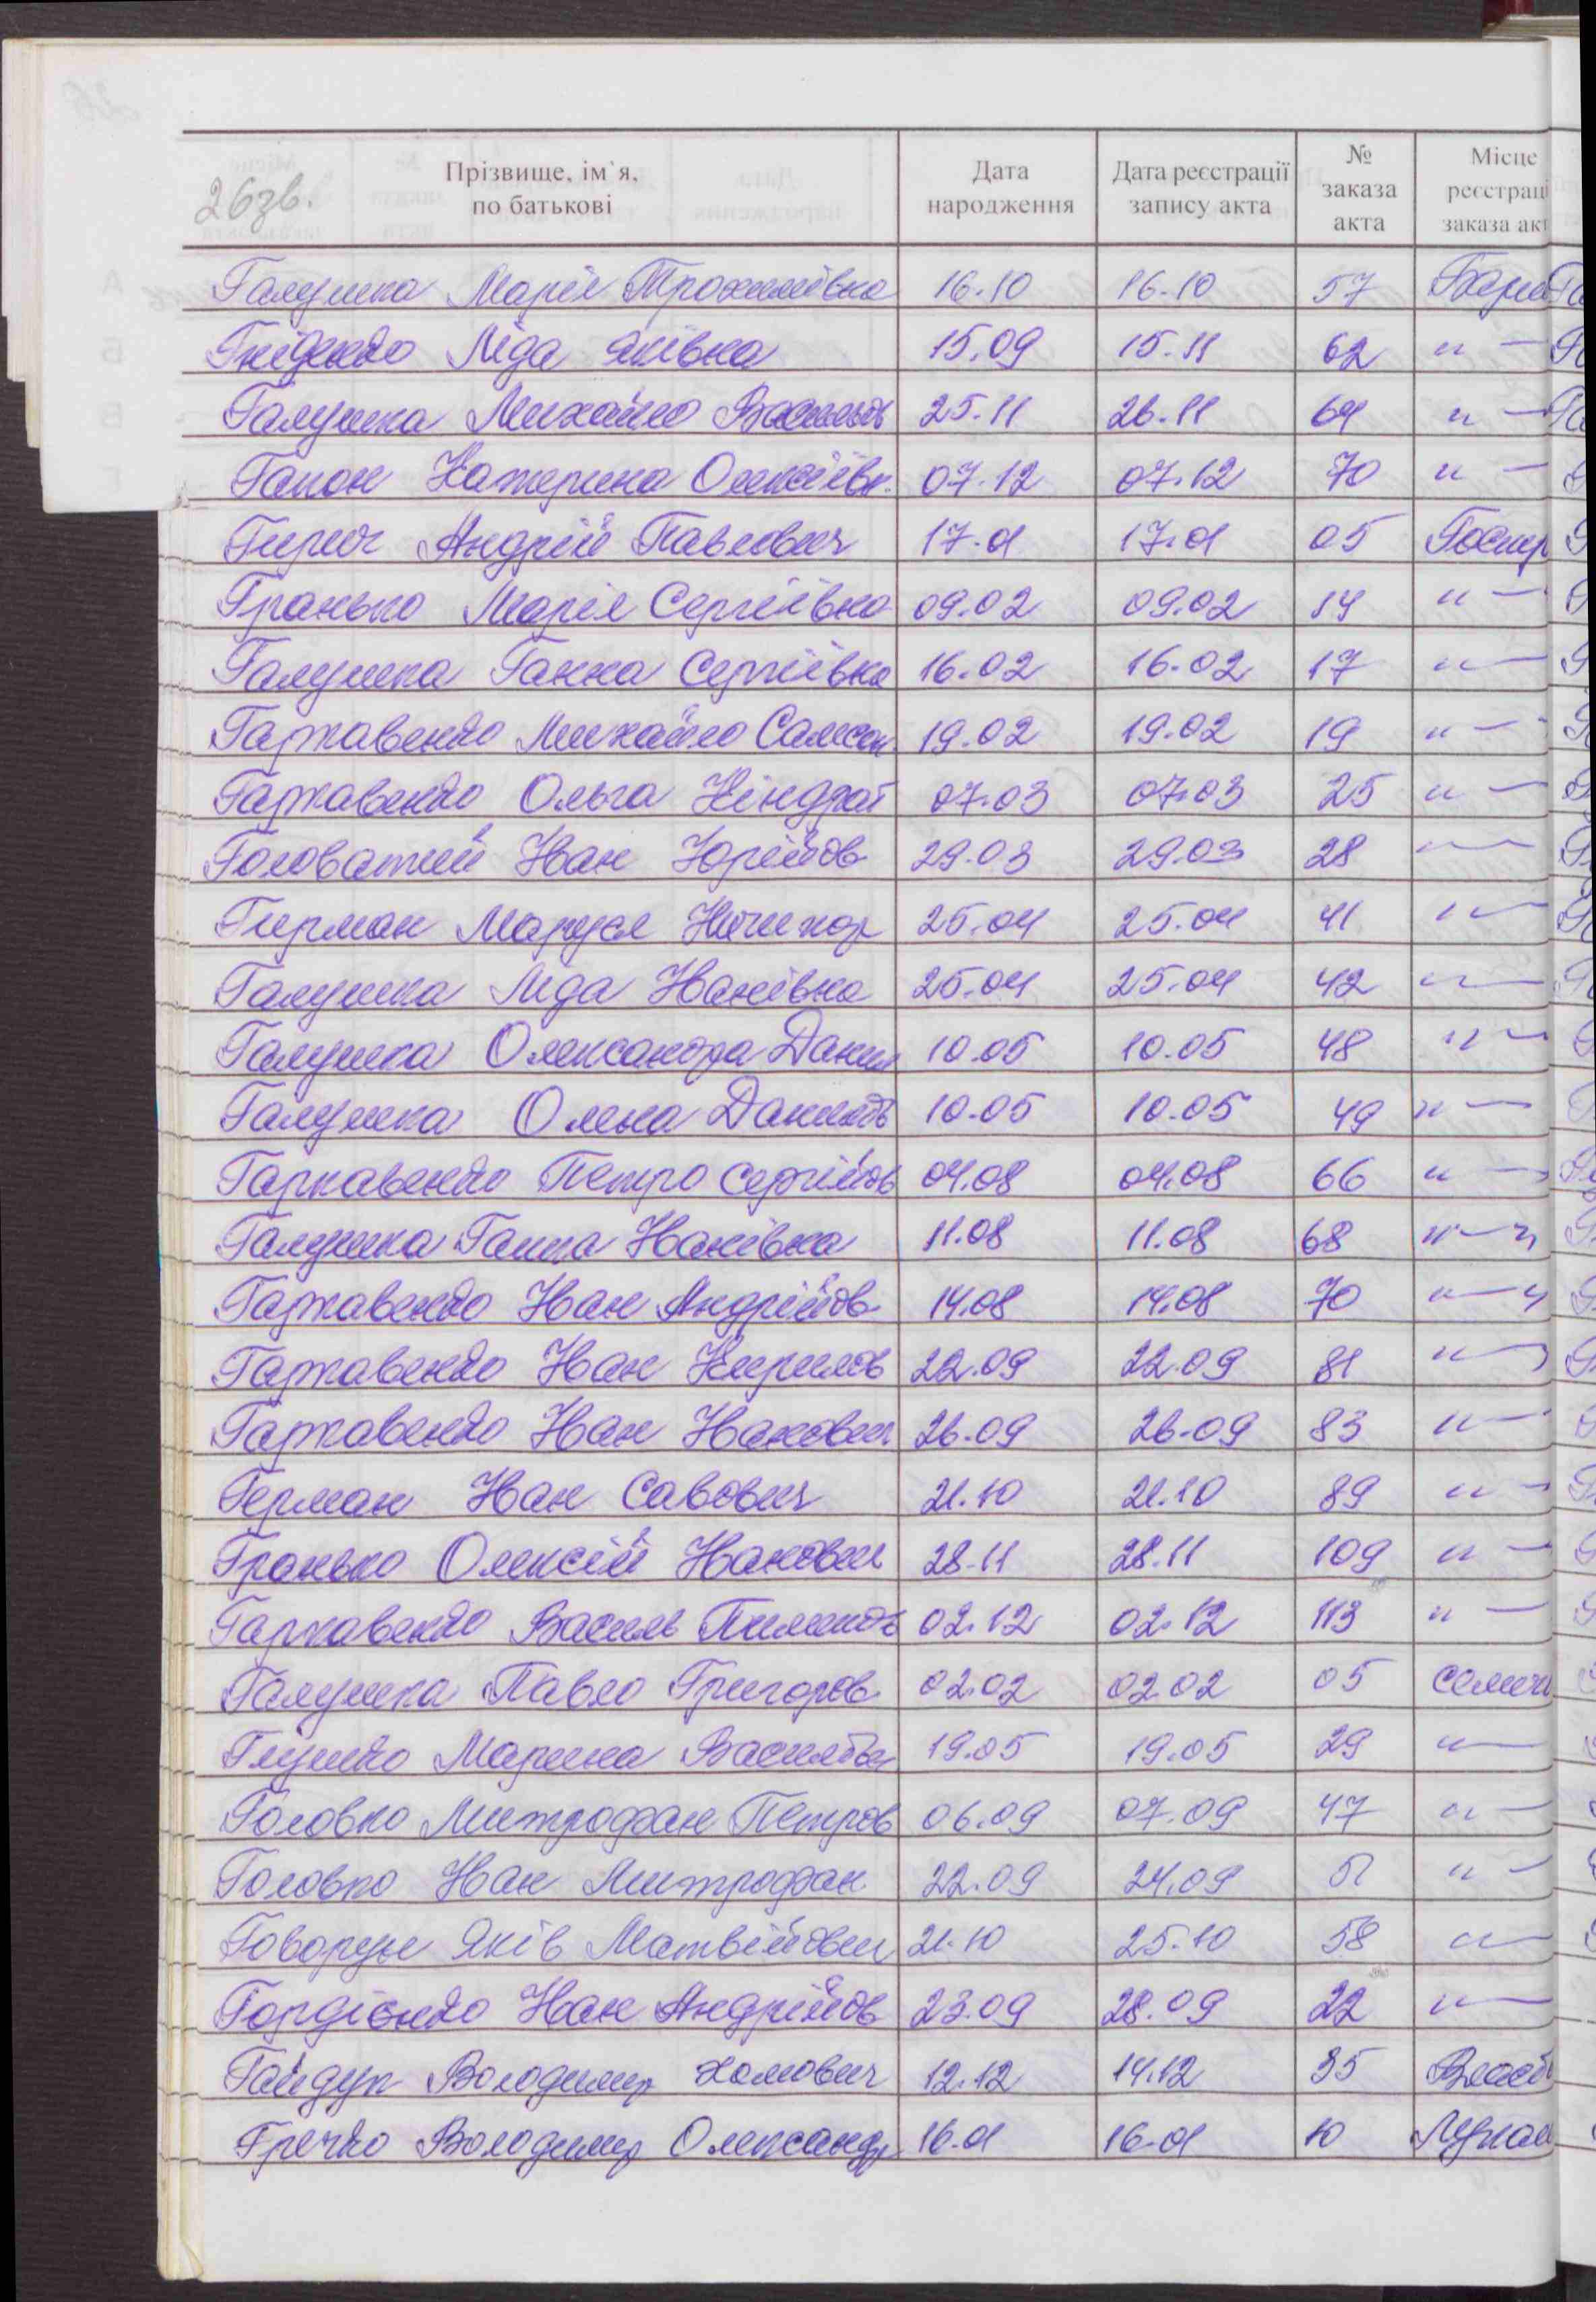 26зв.
Прізвище, ім`я, по батькові | Дата народження | Дата реєстрації запису акта | № заказа акта | Місце реєстраці заказа акт
Галушка Марія Трохимівна 16.10 16.10 57 Бари
Гніденко Ліда Яківна 15.09 15.11 62 "—
Галушка Михайло Васильов 25.11 26.11 64 "—
Гапон Катерина Олексіївн. 07.12 07.12 70 "—
Гирич Андрій Павлович 17.01 17.01 05 Гостр
Гранько Марія Сергіївна 09.02 09.02 14 "—
Галушка Ганна Сергіївна 16.02 16.02 17 "—
Гаркавенко Михайло Самсон 19.02 19.02 19 "—
Гаркавенко Ольга Кіндрат 07.03 07.03 25 "—
Головатий Іван Юрійов 29.03 29.03 28 "—
Гирман Маруся Ничипор 25.04 25.04 41 "—
Галушка Ліда Іванівна 25.04 25.04 42 "—
Галушка Олександра Данил 10.05 10.05 48 "—
Галушка Олена Данилов 10.05 10.05 49 "—
Гаркавенко Петро Сергійов 04.08 04.08 66 "—
Галушка Ганна Іванівна 11.08 11.08 68 "—"
Гаркавенко Іван Андрійов 14.08 14.08 70 "—"
Гаркавенко Іван Кирилов 22.09 22.09 81 "—"
Гаркавенко Іван Іванович 26.09 26.09 83 "—
Герман Іван Савович 21.10 21.10 89 "—
Гранько Олексій Іванович 28.11 28.11 109 "—
Гаркавенко Василь Пилипов 02.12 02.12 113 "—
Галушка Павло Григоров 02.02 02.02 05 Семичи
Глушко Марина Васильвн 19.05 19.05 29 "—
Головко Митрофан Петров 06.09 07.09 47 "—
Головко Іван Митрофан 22.09 24.09 51 "—
Говорун Яків Матвійович 21.10 25.10 58 "—
Гордієнко Іван Андрійов 23.09 28.09 22 "—
Гайдук Володимир Хомович 12.12 14.12 35
Гречко Володимир Олександр 16.01 16.01 10 Лукаш